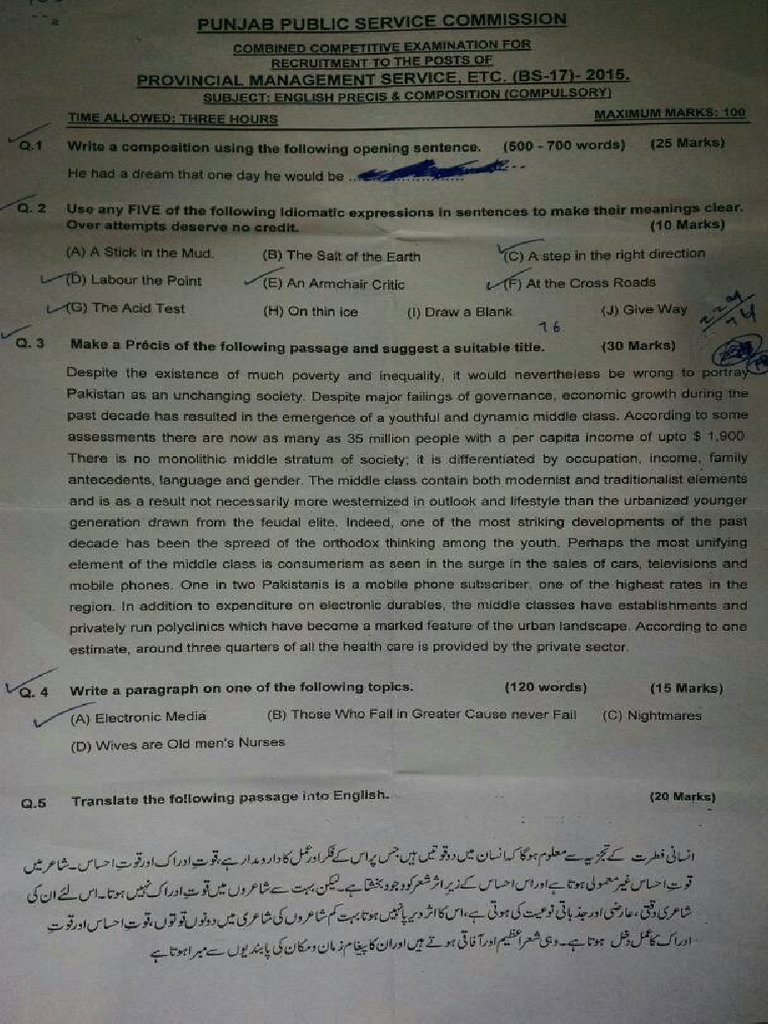 PUNJAB PUBLIC SERVICE COMMISSION
COMBINED COMPETITIVE EXAMINATION FOR
RECRUITMENT TO THE POSTS OF
PROVINCIAL MANAGEMENT SERVICE, ETC. (BS-17)- 2015.
SUBJECT: ENGLISH PRECIS & COMPOSITION (COMPULSORY)
TIME ALLOWED: THREE HOURS MAXIMUM MARKS: 100
Q.1 Write a composition using the following opening sentence. (500 - 700 words) (25 Marks)
He had a dream that one day he would be ...
Q. 2 Use any FIVE of the following Idiomatic expressions in sentences to make their meanings clear.
Over attempts deserve no credit. (10 Marks)
(A) A Stick in the Mud. (B) The Salt of the Earth (C) A step in the right direction
(D) Labour the Point (E) An Armchair Critic (F) At the Cross Roads
(G) The Acid Test (H) On thin ice (I) Draw a Blank (J) Give Way
76
Q. 3 Make a Précis of the following passage and suggest a suitable title. (30 Marks)
Despite the existence of much poverty and inequality, it would nevertheless be wrong to portray
Pakistan as an unchanging society. Despite major failings of governance, economic growth during the
past decade has resulted in the emergence of a youthful and dynamic middle class. According to some
assessments there are now as many as 35 million people with a per capita income of upto $ 1,900
There is no monolithic middle stratum of society; it is differentiated by occupation, income, family
antecedents, language and gender. The middle class contain both modernist and traditionalist elements
and is as a result not necessarily more westernized in outlook and lifestyle than the urbanized younger
generation drawn from the feudal elite. Indeed, one of the most striking developments of the past
decade has been the spread of the orthodox thinking among the youth. Perhaps the most unifying
element of the middle class is consumerism as seen in the surge in the sales of cars, televisions and
mobile phones. One in two Pakistanis is a mobile phone subscriber, one of the highest rates in the
region. In addition to expenditure on electronic durables, the middle classes have establishments and
privately run polyclinics which have become a marked feature of the urban landscape. According to one
estimate, around three quarters of all the health care is provided by the private sector.
Q. 4 Write a paragraph on one of the following topics. (120 words) (15 Marks)
(A) Electronic Media (B) Those Who Fall in Greater Cause never Fail (C) Nightmares
(D) Wives are Old men's Nurses
Q.5 Translate the following passage into English. (20 Marks)
انسانی فطرت کے تجزیہ سے معلوم ہوگا کہ انسان میں دو قوتیں ہیں جس پر اس کے فکر اور عمل کا دارومدار ہے، قوت ادراک اور قوت احساس۔ شاعر میں
قوت احساس غیر معمولی ہوتا ہے اور اس احساس کے زیر اثر شعر کو وجود بخشتا ہے۔ لیکن بہت سے شاعروں میں قوت ادراک نہیں ہوتا۔ اس لئے ان کی
شاعری وقتی، عارضی اور جذباتی نوعیت کی ہوتی ہے، اس کا اثر دیرپا نہیں ہوتا بہت کم شاعروں کی شاعری میں دونوں قوتوں، قوت احساس اور قوت
ادراک کا عمل دخل ہوتا ہے۔ وہی شعرا عظیم اور آفاقی ہوتے ہیں اور ان کا پیغام زمان و مکان کی پابندیوں سے مبرا ہوتا ہے